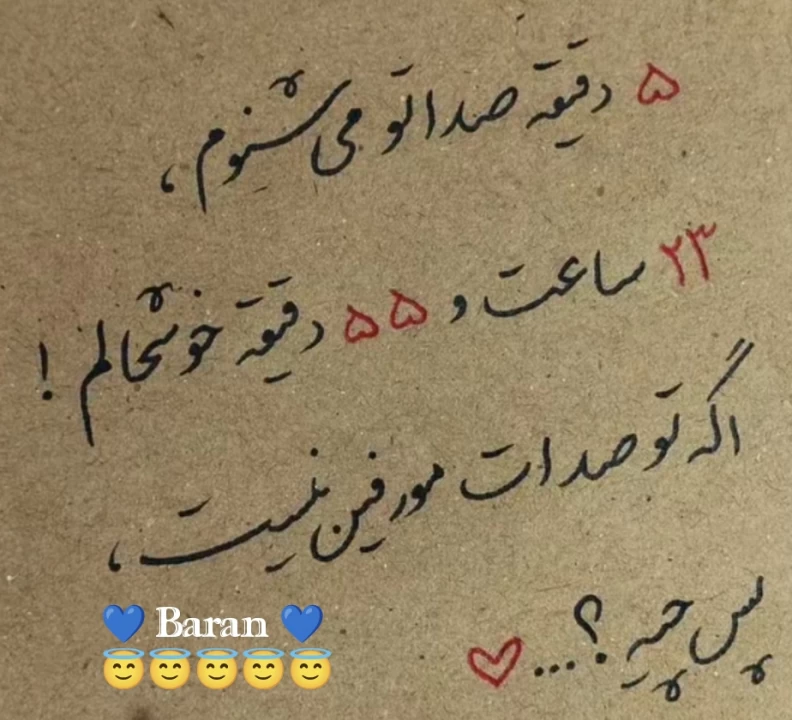 ۵ دقیقه صداتو می شنوم،
۲۳ ساعت و ۵۵ دقیقه خوشحالم!
اگه تو صدات مورفین نیست،
پس چیه؟...♡
💙 Baran 💙
😇😇😇😇😇